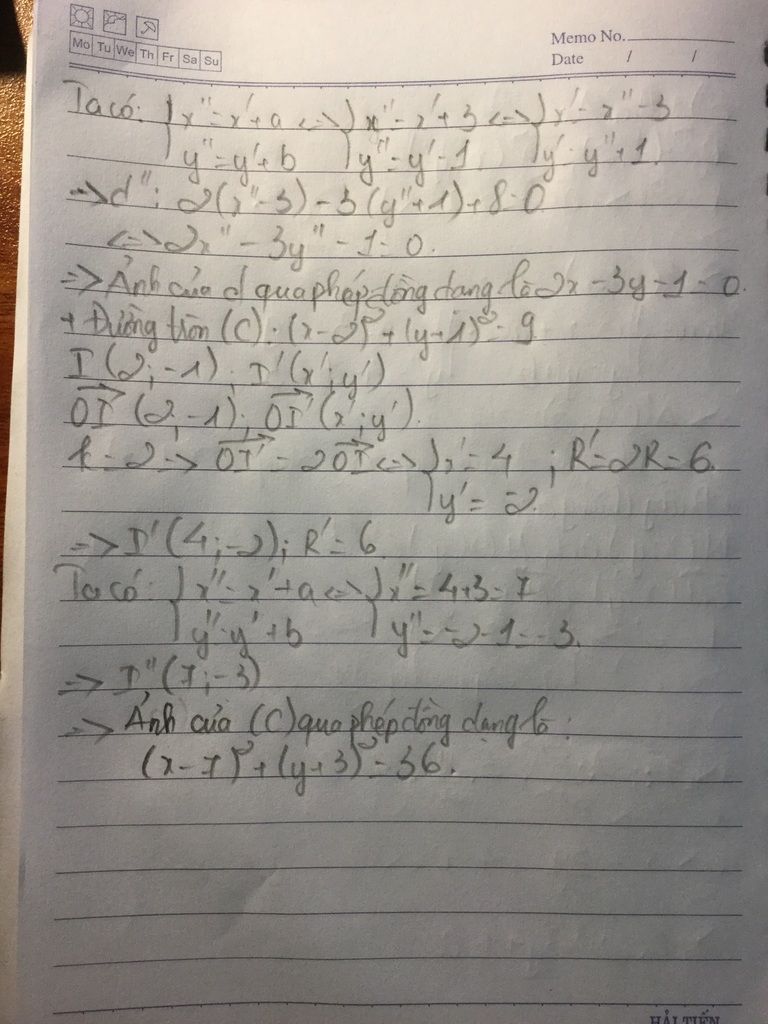 Mo Tu We Th Fr Sa Su
Memo No.
Date / /
Ta có: { x'' = x' + a <=> { x'' = x' + 3 <=> { x' = x'' - 3
y'' = y' + b { y'' = y' - 1 { y' = y'' + 1.
=> d'': 2(x'' - 3) - 3(y'' + 1) + 8 = 0
<=> 2x'' - 3y'' - 1 = 0.
=> Ảnh của d qua phép đồng dạng là 2x - 3y - 1 = 0.
+ Đường tròn (C): (x - 2)² + (y + 1)² = 9
I(2; -1); I'(x'; y')
OI (2; -1); OI' (x'; y').
k = 2 => OI' = 2OI <=> { x' = 4 ; R' = 2R = 6.
y' = -2.
=> I'(4; -2); R' = 6
Ta có: { x'' = x' + a <=> { x'' = 4+3 = 7
y'' = y' + b { y'' = -2 - 1 = -3.
=> I''(7; -3)
=> Ảnh của (C) qua phép đồng dạng là:
(x - 7)² + (y + 3)² = 36.
HẢI TIẾN